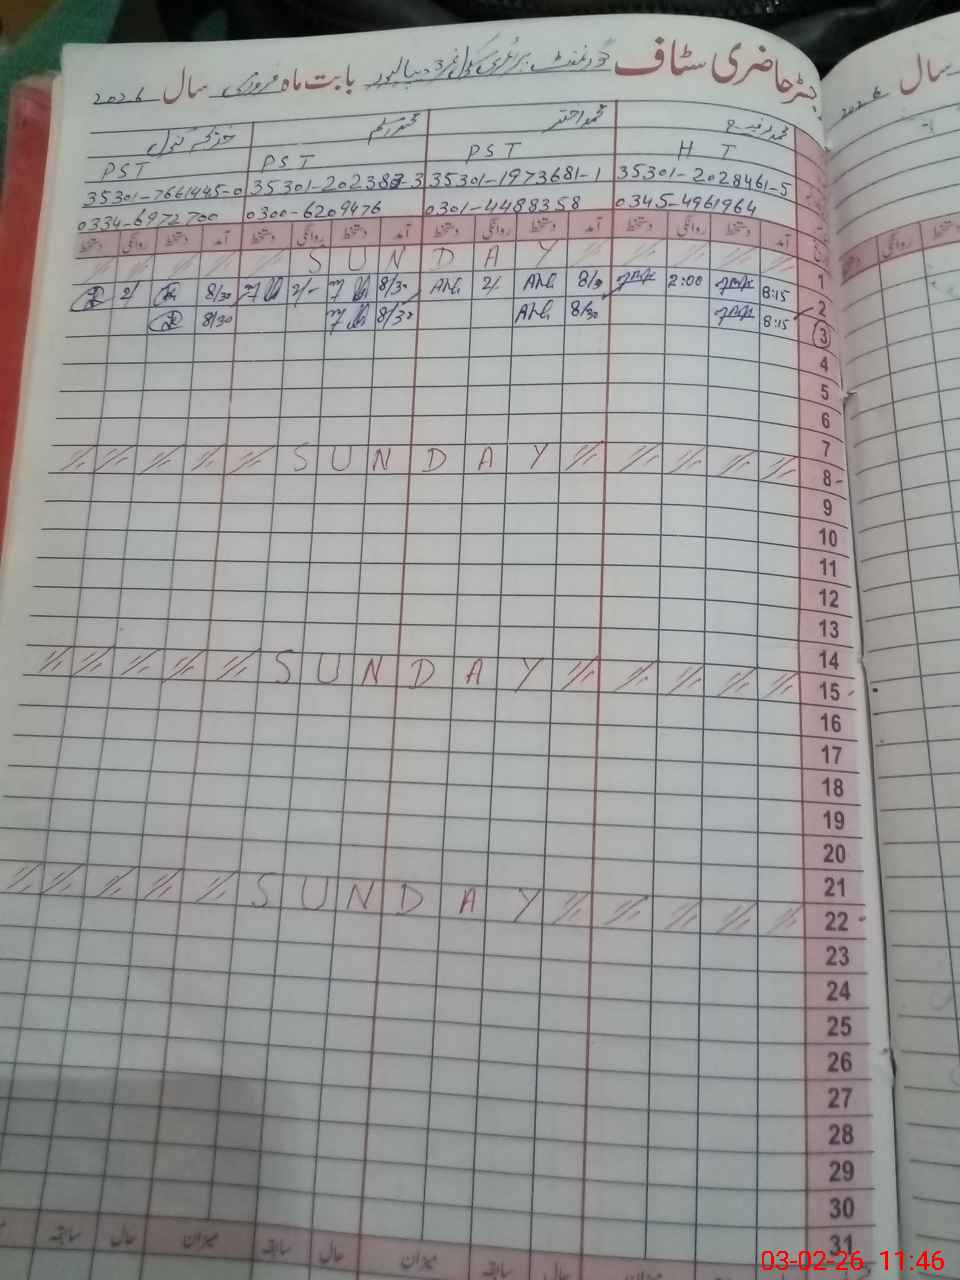 رجسٹر حاضری سٹاف گورنمنٹ پرائمری سکول نمبر 3 دیپالپور بابت ماہ فروری سال 2026
محمد رفیع محمد اختر محمد سلیم خدیجہ کنول
H T PST PST PST
35301-2028461-5 35301-1973681-1 35301-202383-3 35301-7661445-0
0345-4961964 0301-4488358 0300-6209476 0334-6972700
آمد دستخط روانگی دستخط آمد دستخط روانگی دستخط آمد دستخط روانگی دستخط آمد دستخط روانگی دستخط
1 SUNDAY
2 8:15 2:00 8/30 2/ 8/30 2/- 8/30 2/
3 8:15 8/30 8/30 8/30
4
5
6
7
8 SUNDAY
9
10
11
12
13
14
15 SUNDAY
16
17
18
19
20
21
22 SUNDAY
23
24
25
26
27
28
29
30
31
میزان حال سابقہ میزان حال سابقہ میزان حال سابقہ
سال 2026
روانگی دستخط
03-02-26 11:46